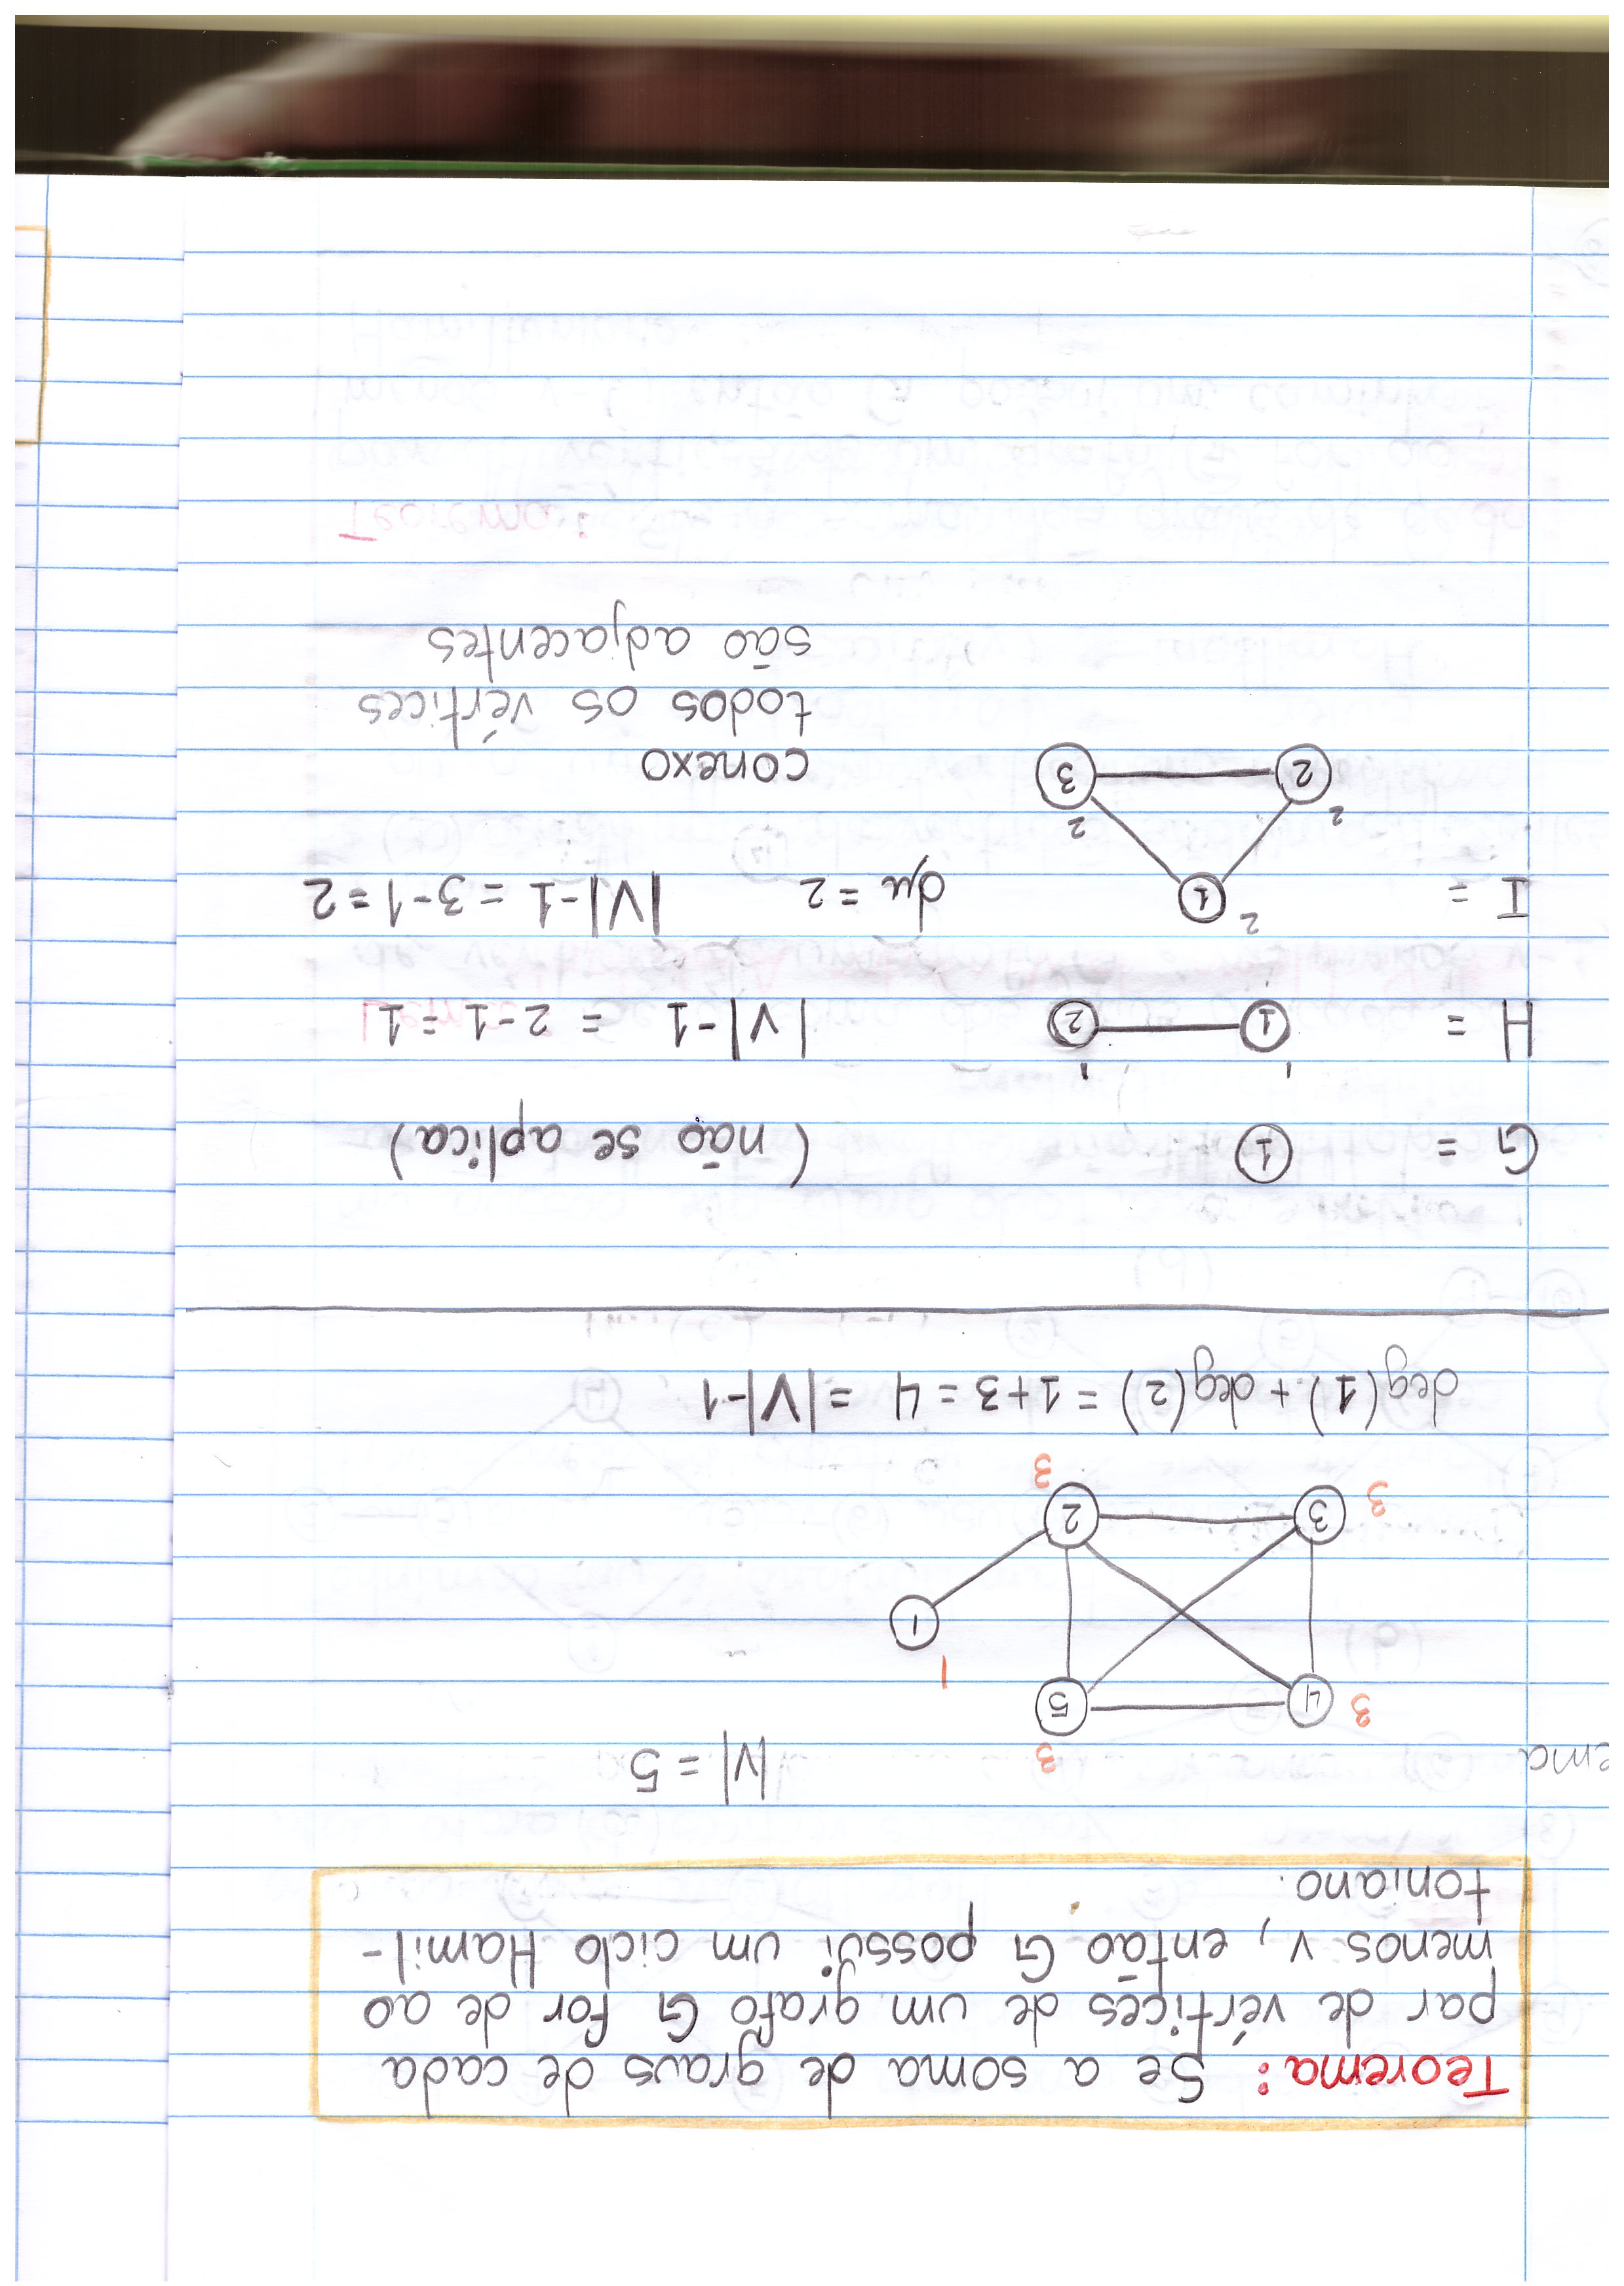 Teorema: Se a soma de graus de cada
par de vértices de um grafo G for de ao
menos v, então G possui um ciclo Hamil-
toniano.
ema
|V| = 5
3
3 4 5
1
1
3 3 2
3
deg(1) + deg(2) = 1+3 = 4 = |V|-1
G = 1 (não se aplica)
1 1
H = 1 2 |V|-1 = 2-1 = 1
I = 2 1 du = 2 |V|-1 = 3-1 = 2
2 2
2 3
conexo
todos os vértices
são adjacentes